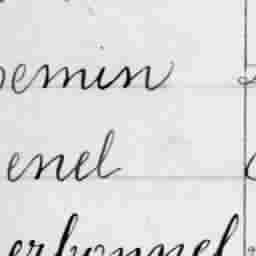 emin
enel
erbonnel